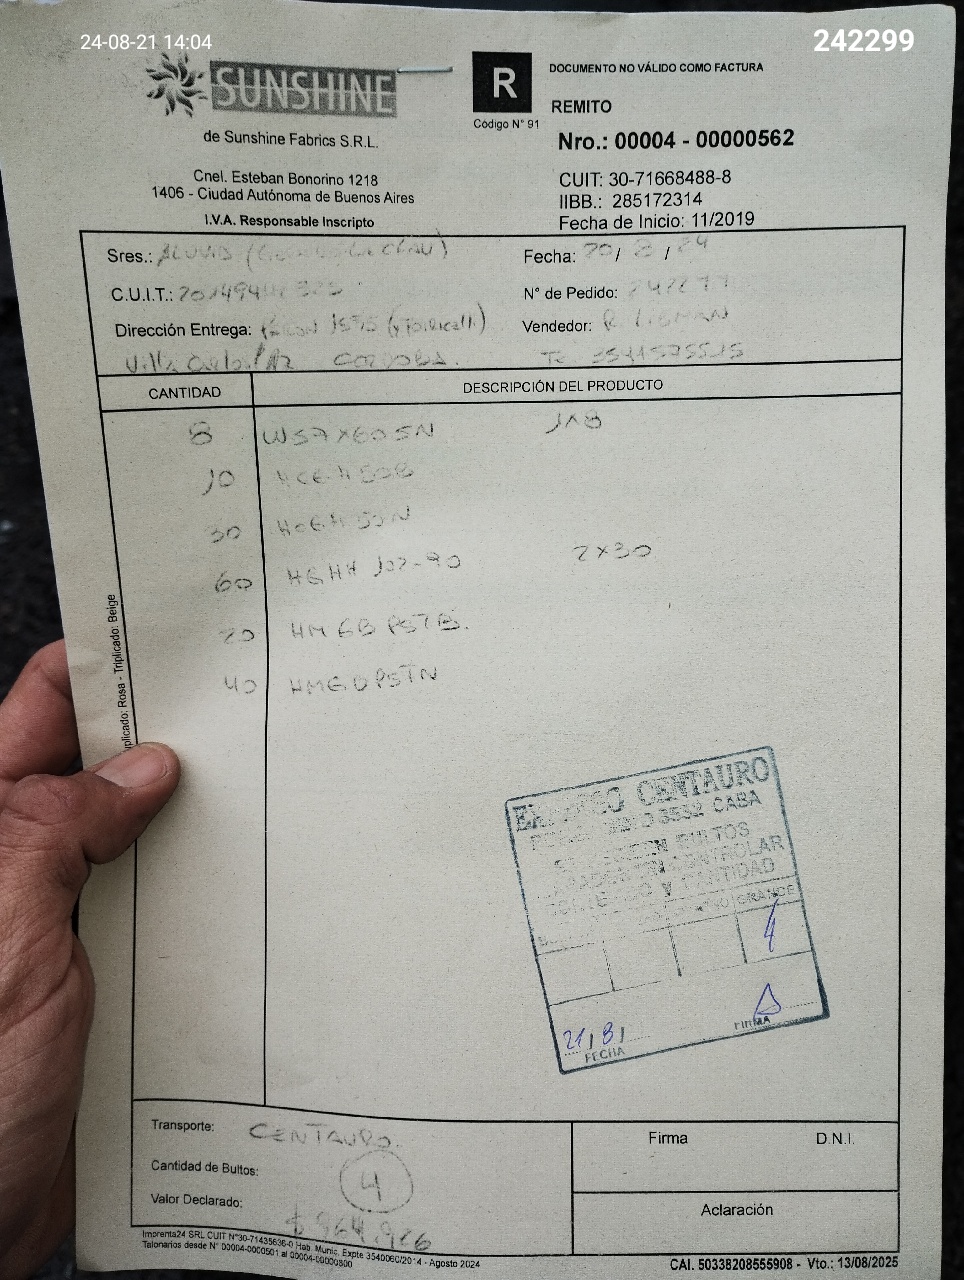 24-08-21 14:04
242299
SUNSHINE
de Sunshine Fabrics S.R.L.
Cnel. Esteban Bonorino 1218
1406 - Ciudad Autónoma de Buenos Aires
I.V.A. Responsable Inscripto
R
Código N° 91
DOCUMENTO NO VÁLIDO COMO FACTURA
REMITO
Nro.: 00004 - 00000562
CUIT: 30-71668488-8
IIBB.: 285172314
Fecha de Inicio: 11/2019
Sres.:
Fecha: 20/ 8 / 24
C.U.I.T.:
N° de Pedido:
Dirección Entrega:
Vendedor: R. LIBMAN
Villa Carlos Paz CORDOBA. Te 3541575515
CANTIDAD DESCRIPCIÓN DEL PRODUCTO
8 WS7X60SN 1x8
10
30
60 HGHH 107-90 2x30
20 HM6BPSTB.
40 HM6DPSTN
Duplicado: Rosa - Triplicado: Beige
EXPRESO CENTAURO
3552 CABA
BULTOS
CONTROLAR
Y CANTIDAD
GRANDE
4
21/8/
FECHA
FIRMA
Transporte: CENTAURO.
Cantidad de Bultos: 4
Valor Declarado: $ 964.926
Firma D.N.I.
Aclaración
Imprenta24 SRL CUIT N°30-71435636-0 Hab. Munic. Expte 3540060/2014 - Agosto 2024
Talonarios desde N° 00004-0000501 al 00004-00000800
CAI. 50338208555908 - Vto.: 13/08/2025